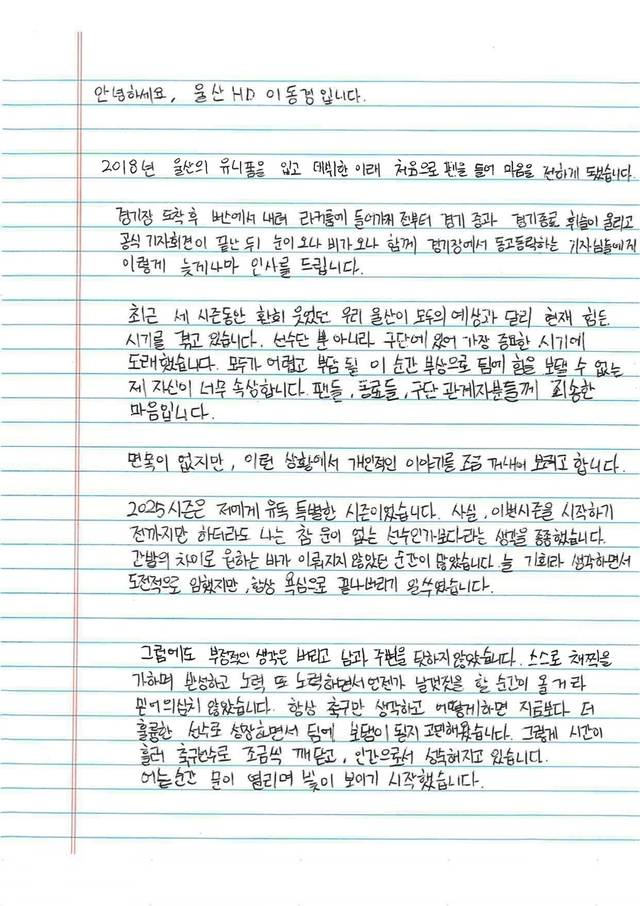 안녕하세요, 울산HD 이동경입니다.
2018년 울산의 유니폼을 입고 데뷔한 이래 처음으로 펜을 들어 마음을 전하게 됐습니다.
경기장 도착 후 버스에서 내려 라커룸에 들어가기 전부터 경기 중과 경기종료 휘슬이 울리고
공식 기자회견이 끝난 뒤 눈이 오나 비가 오나 함께 경기장에서 동고동락하는 기자님들에게
이렇게 늦게나마 인사를 드립니다.
최근 세 시즌동안 환희 웃었던 우리 울산이 모두의 예상과 달리 현재 힘든
시기를 겪고 있습니다. 선수단 뿐 아니라 구단에 있어 가장 중요한 시기에
도래했습니다. 모두가 어렵고 부담 될 이 순간 부상으로 팀에 힘을 보탤 수 없는
제 자신이 너무 속상합니다. 팬들, 동료들, 구단 관계자분들께 죄송한
마음입니다.
면목이 없지만, 이런 상황에서 개인적인 이야기를 조금 꺼내어 보려고 합니다.
2025시즌은 저에게 유독 특별한 시즌이었습니다. 사실, 이번시즌을 시작하기
전까지만 하더라도 나는 참 운이 없는 선수인가보다라는 생각을 종종했습니다.
간발의 차이로 원하는 바가 이뤄지지 않았던 순간이 많았습니다. 늘 기회라 생각하면서
도전적으로 임했지만, 항상 욕심으로 끝나버리기 일쑤였습니다.
그럼에도 부정적인 생각은 버리고 남과 주변을 탓하지 않았습니다. 스스로 채찍을
가하며 반성하고 노력 또 노력하면서 언젠가 날갯짓을 할 순간이 올 거라
믿어 의심치 않았습니다. 항상 축구만 생각하고 어떻게하면 지금보다 더
훌륭한 선수로 성장하면서 팀에 보탬이 될지 고민해왔습니다. 그렇게 시간이
흘러 축구선수로 조금씩 깨닫고, 인간으로서 성숙해지고 있습니다.
어느순간 문이 열리며 빛이 보이기 시작했습니다.